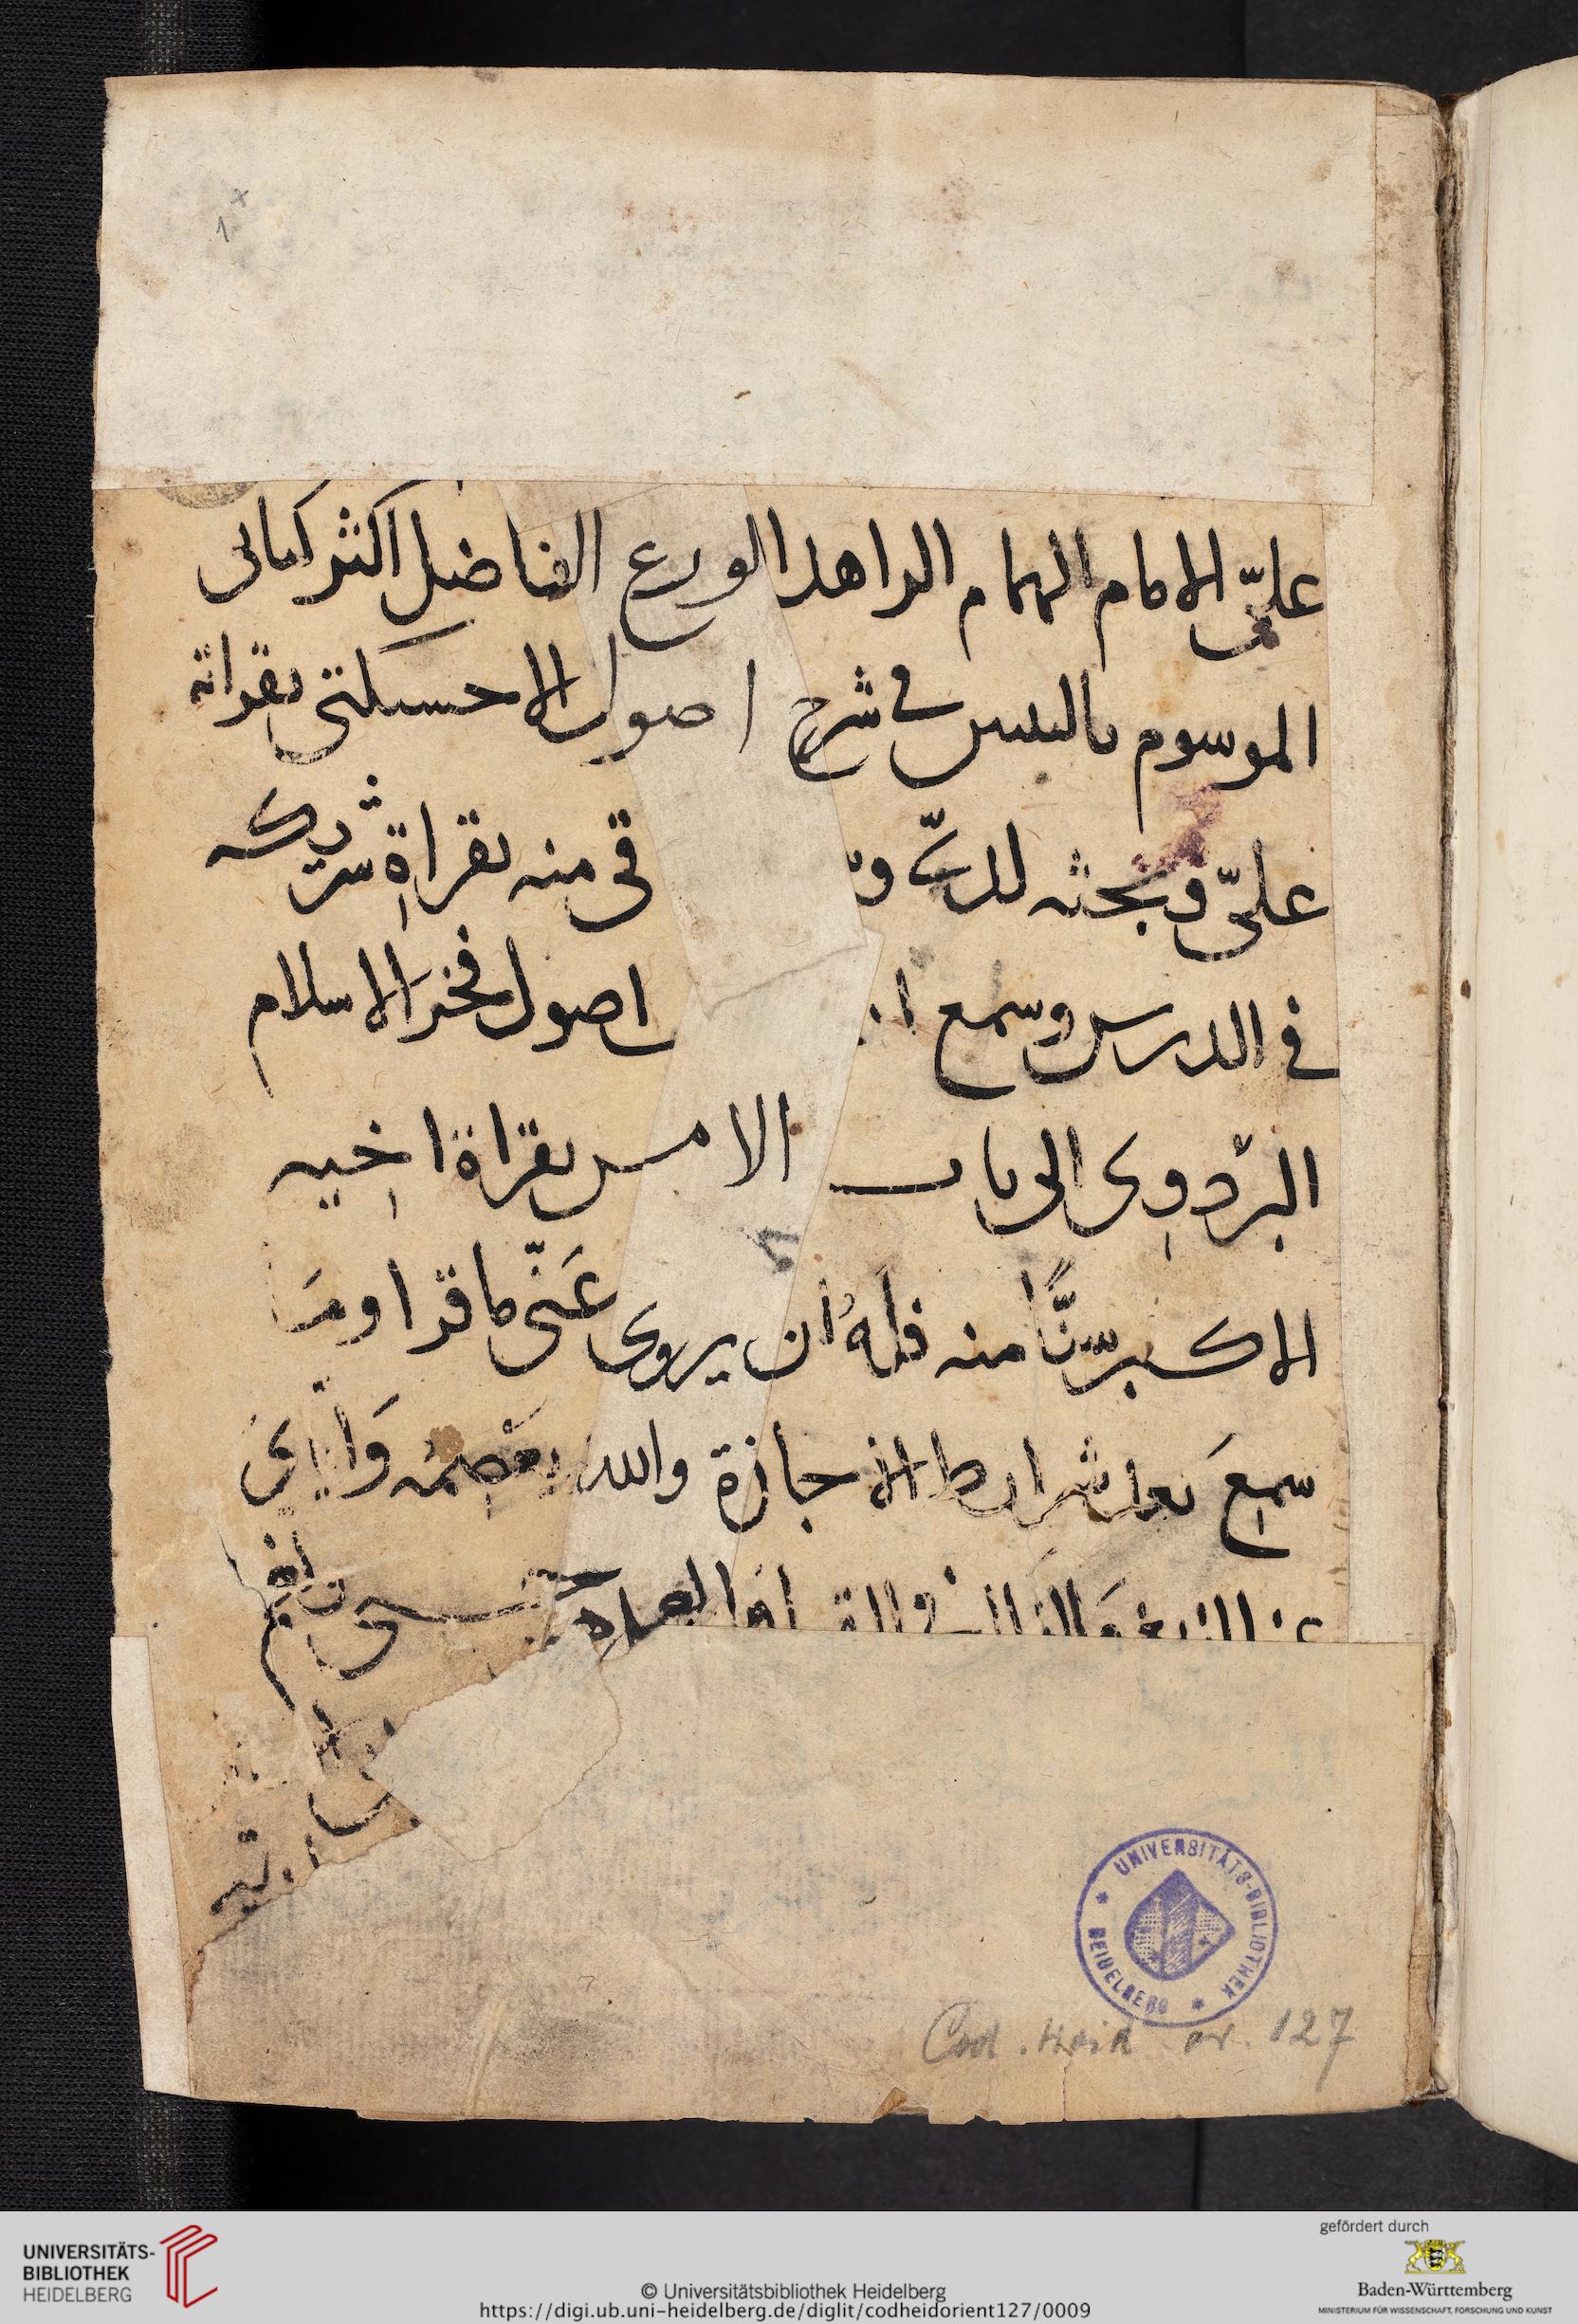 1 x
عليّ الامام الهمام الزاهد الورع الفاضل اكثر كتابى
الموسوم بالتبيين فى شرح اصول الاخسيكتى بقراته
علىّ وبحثه لدىّ و قى منه بقراة شريكه
فى الدرس وسمع ا اصول فخر الاسلام
البزدوى الى باب الامر بقراة اخيه
الاكبر سنًّا منه فلهُ ان يروى عَنّى ما قرا ومَا
سمعَ بعد شرايط الاجازة والله يعصمه وَايّاىَ
عن الزيغ وَالزلل فى القـ
UNIVERSITÄTS-BIBLIOTHEK
* HEIDELBERG *
Cod. Heid. or. 127
UNIVERSITÄTS-
BIBLIOTHEK
HEIDELBERG
© Universitätsbibliothek Heidelberg
https://digi.ub.uni-heidelberg.de/diglit/codheidorient127/0009
gefördert durch
Baden-Württemberg
MINISTERIUM FÜR WISSENSCHAFT, FORSCHUNG UND KUNST